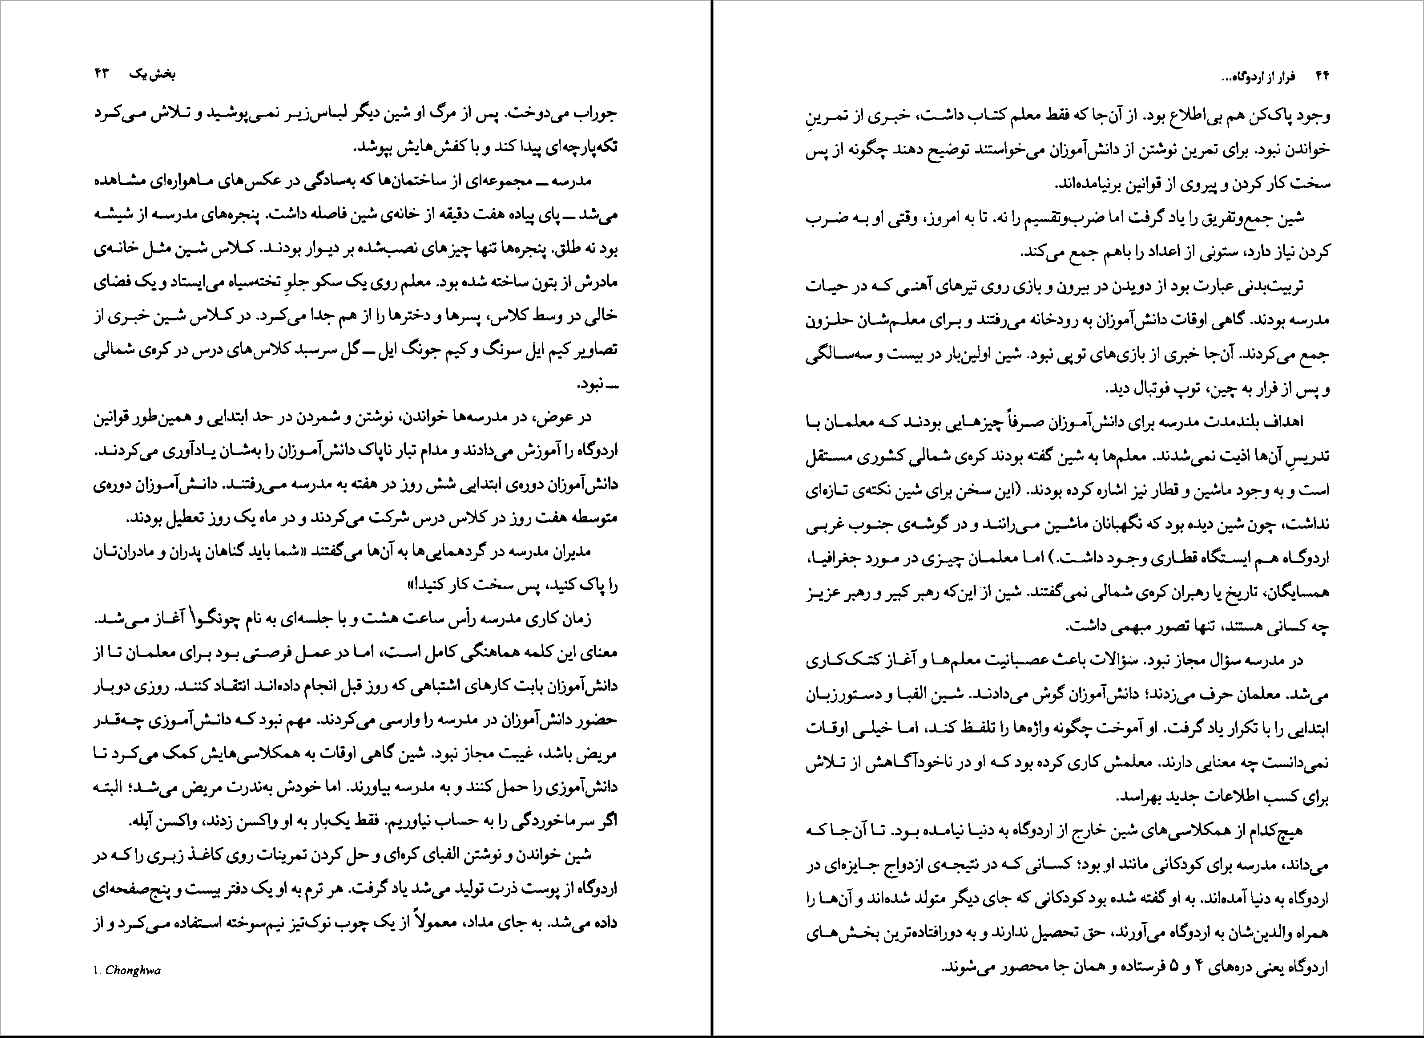 بخش یک ۴۳
جوراب می‌دوخت. پس از مرگ او شین دیگر لباس‌زیر نمی‌پوشید و تلاش می‌کرد
تکه‌پارچه‌ای پیدا کند و با کفش‌هایش بپوشد.
مدرسه ــ مجموعه‌ای از ساختمان‌ها که به‌سادگی در عکس‌های ماهواره‌ای مشاهده
می‌شد ــ پای پیاده هفت دقیقه از خانه‌ی شین فاصله داشت. پنجره‌های مدرسه از شیشه
بود نه طلق. پنجره‌ها تنها چیزهای نصب‌شده بر دیوار بودند. کلاس شین مثل خانه‌ی
مادرش از بتون ساخته شده بود. معلم روی یک سکو جلوِ تخته‌سیاه می‌ایستاد و یک فضای
خالی در وسط کلاس، پسرها و دخترها را از هم جدا می‌کرد. در کلاس شین خبری از
تصاویر کیم ایل سونگ و کیم جونگ ایل ــ گل سرسبد کلاس‌های درس در کره‌ی شمالی
ــ نبود.
در عوض، در مدرسه‌ها خواندن، نوشتن و شمردن در حد ابتدایی و همین‌طور قوانین
اردوگاه را آموزش می‌دادند و مدام تبار ناپاک دانش‌آموزان را به‌شان یادآوری می‌کردند.
دانش‌آموزان دوره‌ی ابتدایی شش روز در هفته به مدرسه می‌رفتند. دانش‌آموزان دوره‌ی
متوسطه هفت روز در کلاس درس شرکت می‌کردند و در ماه یک روز تعطیل بودند.
مدیران مدرسه در گردهمایی‌ها به آن‌ها می‌گفتند «شما باید گناهان پدران و مادران‌تان
را پاک کنید، پس سخت کار کنید!»
زمان کاری مدرسه رأس ساعت هشت و با جلسه‌ای به نام چونگوا۱ آغاز می‌شد.
معنای این کلمه هماهنگی کامل است، اما در عمل فرصتی بود برای معلمان تا از
دانش‌آموزان بابت کارهای اشتباهی که روز قبل انجام داده‌اند انتقاد کنند. روزی دوبار
حضور دانش‌آموزان در مدرسه را وارسی می‌کردند. مهم نبود که دانش‌آموزی چه‌قدر
مریض باشد، غیبت مجاز نبود. شین گاهی اوقات به همکلاسی‌هایش کمک می‌کرد تا
دانش‌آموزی را حمل کنند و به مدرسه بیاورند. اما خودش به‌ندرت مریض می‌شد؛ البته
اگر سرماخوردگی را به حساب نیاوریم. فقط یک‌بار به او واکسن زدند، واکسن آبله.
شین خواندن و نوشتن الفبای کره‌ای و حل کردن تمرینات روی کاغذ زبری را که در
اردوگاه از پوست ذرت تولید می‌شد یاد گرفت. هر ترم به او یک دفتر بیست و پنج‌صفحه‌ای
داده می‌شد. به جای مداد، معمولاً از یک چوب نوک‌تیز نیم‌سوخته استفاده می‌کرد و از
1. Chonghwa
۴۴ فرار از اردوگاه...
وجود پاک‌کن هم بی‌اطلاع بود. از آن‌جا که فقط معلم کتاب داشت، خبری از تمرینِ
خواندن نبود. برای تمرین نوشتن از دانش‌آموزان می‌خواستند توضیح دهند چگونه از پس
سخت کار کردن و پیروی از قوانین برنیامده‌اند.
شین جمع‌وتفریق را یاد گرفت اما ضرب‌وتقسیم را نه. تا به امروز، وقتی او به ضرب
کردن نیاز دارد، ستونی از اعداد را باهم جمع می‌کند.
تربیت‌بدنی عبارت بود از دویدن در بیرون و بازی روی تیرهای آهنی که در حیات
مدرسه بودند. گاهی اوقات دانش‌آموزان به رودخانه می‌رفتند و برای معلم‌شان حلزون
جمع می‌کردند. آن‌جا خبری از بازی‌های توپی نبود. شین اولین‌بار در بیست و سه‌سالگی
و پس از فرار به چین، توپ فوتبال دید.
اهداف بلندمدت مدرسه برای دانش‌آموزان صرفاً چیزهایی بودند که معلمان با
تدریسِ آن‌ها اذیت نمی‌شدند. معلم‌ها به شین گفته بودند کره‌ی شمالی کشوری مستقل
است و به وجود ماشین و قطار نیز اشاره کرده بودند. (این سخن برای شین نکته‌ی تازه‌ای
نداشت، چون شین دیده بود که نگهبانان ماشین می‌رانند و در گوشه‌ی جنوب غربی
اردوگاه هم ایستگاه قطاری وجود داشت.) اما معلمان چیزی در مورد جغرافیا،
همسایگان، تاریخ یا رهبران کره‌ی شمالی نمی‌گفتند. شین از این‌که رهبر کبیر و رهبر عزیز
چه کسانی هستند، تنها تصور مبهمی داشت.
در مدرسه سؤال مجاز نبود. سؤالات باعث عصبانیت معلم‌ها و آغاز کتک‌کاری
می‌شد. معلمان حرف می‌زدند؛ دانش‌آموزان گوش می‌دادند. شین الفبا و دستورزبان
ابتدایی را با تکرار یاد گرفت. او آموخت چگونه واژه‌ها را تلفظ کند، اما خیلی اوقات
نمی‌دانست چه معنایی دارند. معلمش کاری کرده بود که او در ناخودآگاهش از تلاش
برای کسب اطلاعات جدید بهراسد.
هیچ‌کدام از همکلاسی‌های شین خارج از اردوگاه به دنیا نیامده بود. تا آن‌جا که
می‌داند، مدرسه برای کودکانی مانند او بود؛ کسانی که در نتیجه‌ی ازدواج جایزه‌ای در
اردوگاه به دنیا آمده‌اند. به او گفته شده بود کودکانی که جای دیگر متولد شده‌اند و آن‌ها را
همراه والدین‌شان به اردوگاه می‌آورند، حق تحصیل ندارند و به دورافتاده‌ترین بخش‌های
اردوگاه یعنی دره‌های ۴ و ۵ فرستاده و همان جا محصور می‌شوند.